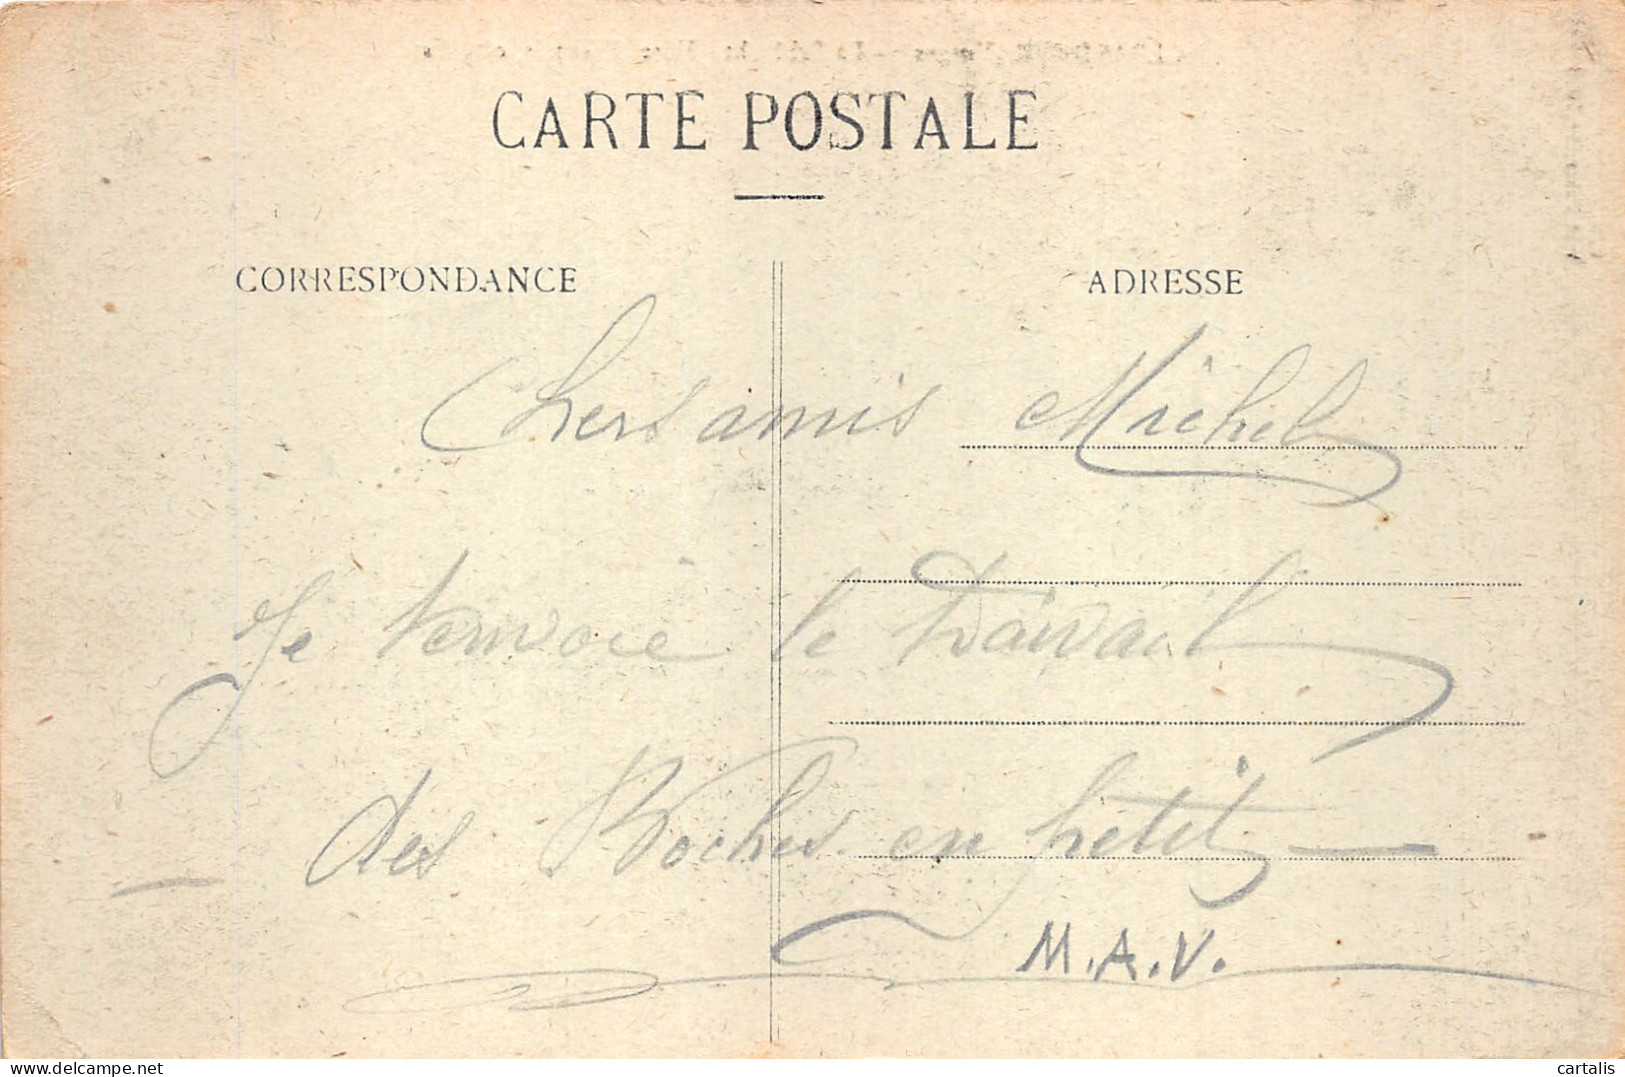 CARTE POSTALE
CORRESPONDANCE
ADRESSE
Chers amis Michel
Je t'envoie le travail
des Boches en petit
M.A.V.
www.delcampe.net
cartalis